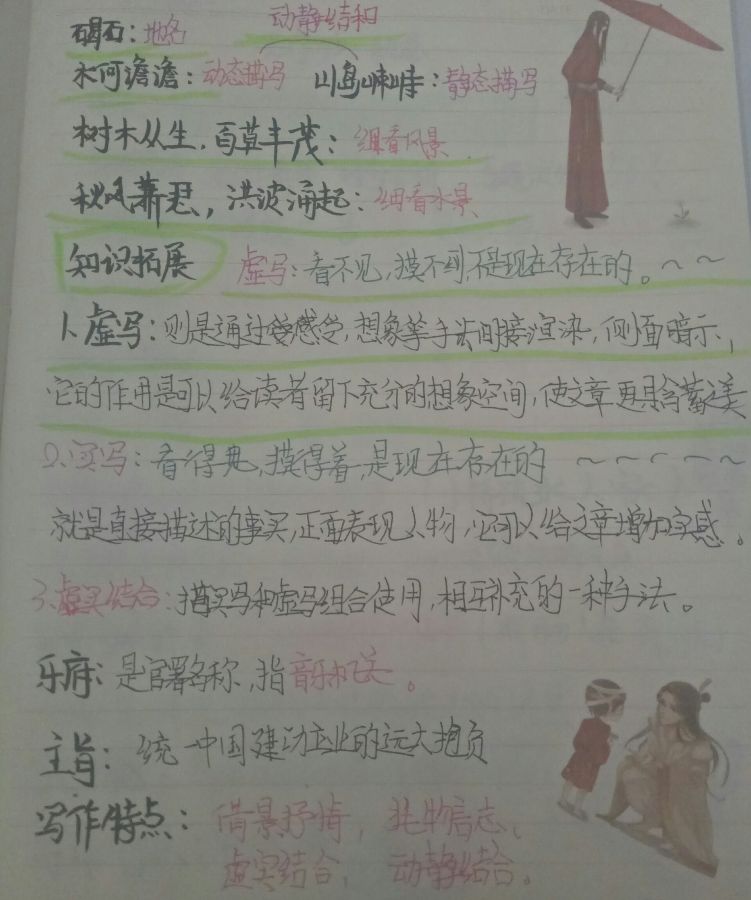 碣石：地名 动静结和
水何澹澹：动态描写 山岛竦峙：静态描写
树木丛生，百草丰茂：细看风景
秋风萧瑟，洪波涌起：细看水景
知识拓展 虚写：看不见，摸不到，不是现在存在的。～～
1、虚写：则是通过 感觉，想象等手法间接渲染，侧面暗示，
它的作用是可以给读者留下充分的想象空间，使文章更具含蓄之美
2、实写：看得见，摸得着，是现在存在的 ～～～～～
就是直接描述的事实，正面表现人物，它可以给文章增加实感。
3、虚实结合：指实写和虚写组合使用，相互补充的一种手法。
乐府：是官署名称，指音乐机关。
主旨：统一中国建功立业的远大抱负
写作特点：借景抒情，托物言志、
虚实结合，动静结合。